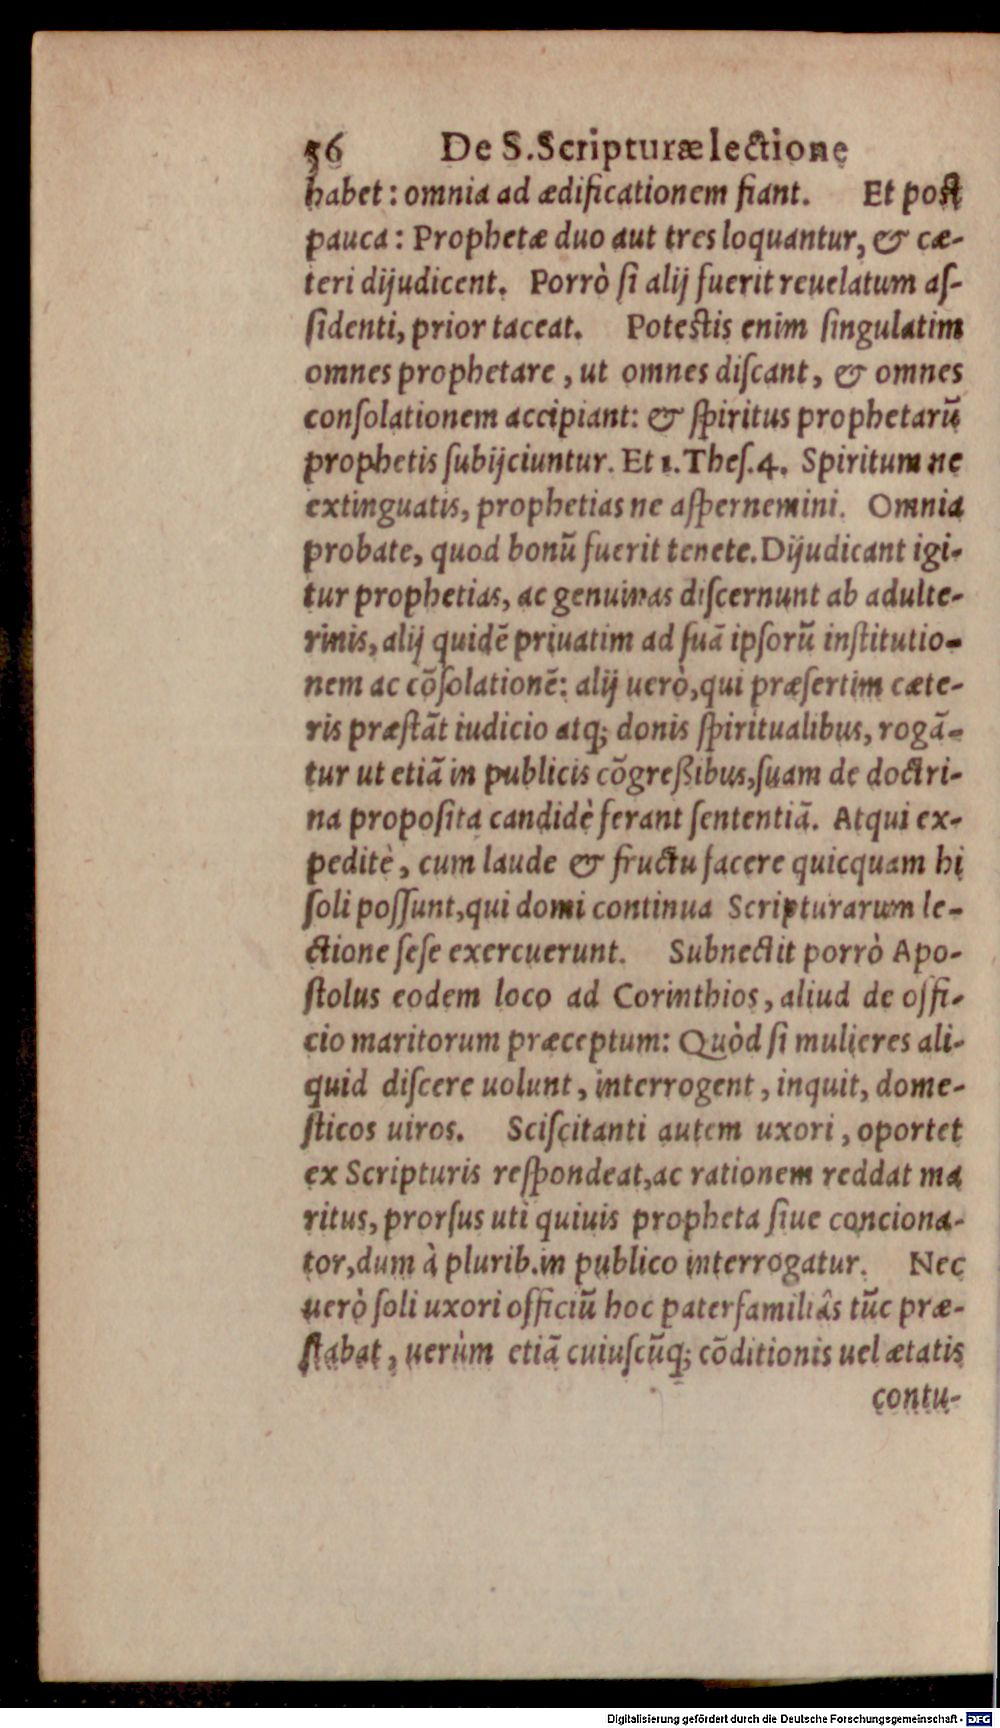 56 De S. Scripturæ lectione
habet: omnia ad ædificationem fiant. Et poſt
pauca: Prophetæ duo aut tres loquantur, & cæ-
teri dijudicent. Porrò ſi alij fuerit reuelatum aſ-
ſidenti, prior taceat. Poteſtis enim ſingulatim
omnes prophetare, ut omnes diſcant, & omnes
conſolationem accipiant: & ſpiritus prophetarū
prophetis ſubijciuntur. Et 1. Theſ. 4. Spiritum ne
extinguatis, prophetias ne aſpernemini. Omnia
probate, quod bonū fuerit tenete. Dijudicant igi-
tur prophetias, ac genuinas diſcernunt ab adulte-
rinis, alij quidē priuatim ad ſuā ipſorū inſtitutio-
nem ac cōſolationē: alij uerò, qui præſertim cæte-
ris præſtāt iudicio atq; donis ſpiritualibus, rogā-
tur ut etiā in publicis cōgreßibus, ſuam de doctri-
na propoſita candidè ferant ſententiā. Atqui ex-
peditè, cum laude & fructu facere quicquam hi
ſoli poſſunt, qui domi continua Scripturarum le-
ctione ſeſe exercuerunt. Subnectit porrò Apo-
ſtolus eodem loco ad Corinthios, aliud de offi-
cio maritorum præceptum: Quòd ſi mulieres ali-
quid diſcere uolunt, interrogent, inquit, dome-
ſticos uiros. Sciſcitanti autem uxori, oportet
ex Scripturis reſpondeat, ac rationem reddat ma
ritus, prorſus uti quiuis propheta ſiue conciona-
tor, dum à plurib. in publico interrogatur. Nec
uerò ſoli uxori officiū hoc paterfamiliâs tūc præ-
ſtabat, uerùm etiā cuiuſcūq; cōditionis uel ætatis
contu-
Digitalisierung gefördert durch die Deutsche Forschungsgemeinschaft - DFG